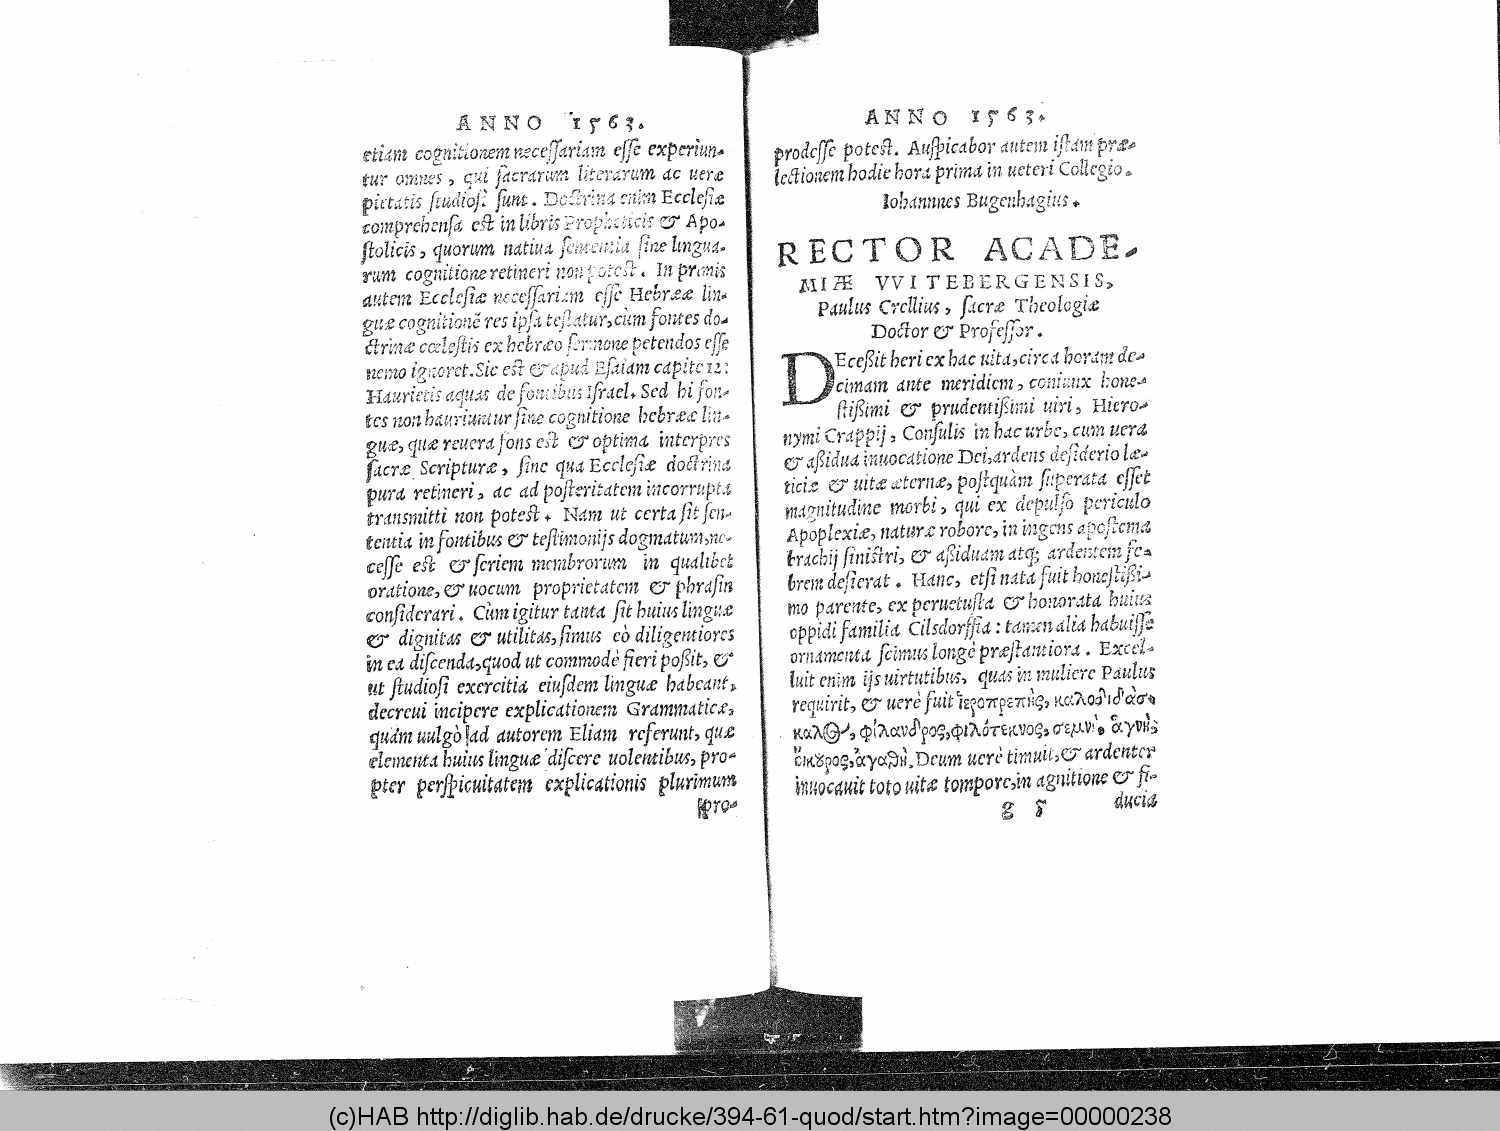 ANNO 1563.
etiam cognitionem neceſſariam eſſe experiun-
tur omnes, qui ſacrarum literarum ac ueræ
pietatis ſtudioſi ſunt. Doctrina enim Eccleſiæ
comprehenſa est in libris Propheticis & Apo-
ſtolicis, quorum natiua ſententia ſine lingua-
rum cognitione retineri non potest. In primis
autem Eccleſiæ neceſſariam eſſe Hebrææ lin-
guæ cognitionẽ res ipſa teſtatur, cùm fontes do-
ctrinæ cœleſtis ex hebræo ſermone petendos eſſe
nemo ignoret. Sic est & apud Eſaiam capite 12:
Haurietis aquas de fontibus Iſrael. Sed hi fon-
tes non hauriuntur ſine cognitione hebrææ lin-
guæ, quæ reuera fons est & optima interpres
ſacræ Scripturæ, ſine qua Eccleſiæ doctrina
pura retineri, ac ad poſteritatem incorrupta
transmitti non potest. Nam ut certa ſit ſen-
tentia in fontibus & teſtimonijs dogmatum, ne-
ceſſe est & ſeriem membrorum in qualibet
oratione, & uocum proprietatem & phraſin
conſiderari. Cùm igitur tanta ſit huius linguæ
& dignitas & utilitas, ſimus eò diligentiores
in ea diſcenda, quod ut commodè fieri poßit, &
ut ſtudioſi exercitia eiuſdem linguæ habeant,
decreui incipere explicationem Grammaticæ,
quàm uulgò ad autorem Eliam referunt, quæ
elementa huius linguæ diſcere uolentibus, pro-
pter perſpicuitatem explicationis plurimum
pro-
ANNO 1563.
prodeſſe potest. Auſpicabor autem iſtam præ-
lectionem hodie hora prima in ueteri Collegio.
Iohannnes Bugenhagius.
RECTOR ACADE-
MIÆ VVITEBERGENSIS,
Paulus Crellius, ſacræ Theologiæ
Doctor & Profeſſor.
DEceßit heri ex hac uita, circa horam de-
cimam ante meridiem, coniunx hone-
ſtißimi & prudentißimi uiri, Hiero-
nymi Crappij, Conſulis in hac urbe, cum uera
& aßidua inuocatione Dei, ardens deſiderio læ-
ticiæ & uitæ æternæ, poſtquàm ſuperata eſſet
magnitudine morbi, qui ex depulſo periculo
Apoplexiæ, naturæ robore, in ingens apoſtema
brachij ſiniſtri, & aßiduam atq; ardentem fe-
brem deſierat. Hanc, etſi nata fuit honeſtißi-
mo parente, ex peruetuſta & honorata huius
oppidi familia Cilsdorffia: tamen alia habuiſſe
ornamenta ſcimus longè præſtantiora. Excel-
luit enim ijs uirtutibus, quas in muliere Paulus
requirit, & uerè fuit ἱεροπρεπὴς, καλοδιδάσ-
καλος, φίλανδρος, φιλότεκνος, σεμνὴ, ἁγνὴ,
οἰκουρος, ἀγαθὴ, Deum uerè timuit, & ardenter
inuocauit toto uitæ tompore, in agnitione & fi-
g 5 ducia
(c)HAB http://diglib.hab.de/drucke/394-61-quod/start.htm?image=00000238